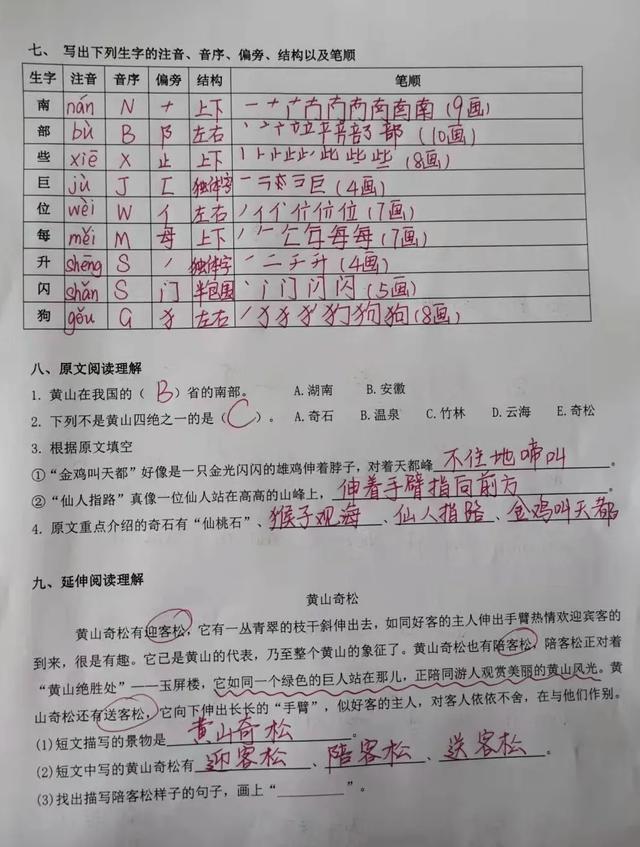 七、 写出下列生字的注音、音序、偏旁、结构以及笔顺
生字 注音 音序 偏旁 结构 笔顺
南 nán N 十 上下 (9画)
部 bù B 阝 左右 (10画)
些 xiē X 止 上下 (8画)
巨 jù J 匚 独体字 (4画)
位 wèi W 亻 左右 (7画)
每 měi M 母 上下 (7画)
升 shēng S 丿 独体字 (4画)
闪 shǎn S 门 半包围 (5画)
狗 gǒu G 犭 左右 (8画)
八、原文阅读理解
1. 黄山在我国的（ B ）省的南部。 A.湖南 B.安徽
2. 下列不是黄山四绝之一的是（ C ）。 A.奇石 B.温泉 C.竹林 D.云海 E.奇松
3. 根据原文填空
①“金鸡叫天都”好像是一只金光闪闪的雄鸡伸着脖子，对着天都峰 不住地啼叫 。
②“仙人指路”真像一位仙人站在高高的山峰上， 伸着手臂指向前方 。
4. 原文重点介绍的奇石有“仙桃石”、 猴子观海 、 仙人指路 、 金鸡叫天都
九、延伸阅读理解
黄山奇松
黄山奇松有迎客松，它有一丛青翠的枝干斜伸出去，如同好客的主人伸出手臂热情欢迎宾客的
到来，很是有趣。它已是黄山的代表，乃至整个黄山的象征了。黄山奇松也有陪客松，陪客松正对着
“黄山绝胜处”——玉屏楼，它如同一个绿色的巨人站在那儿，正陪同游人观赏美丽的黄山风光。黄
山奇松还有送客松，它向下伸出长长的“手臂”，似好客的主人，对客人依依不舍，在与他们作别。
(1)短文描写的景物是 黄山奇松 。
(2)短文中写的黄山奇松有 迎客松 、 陪客松 、 送客松 。
(3)找出描写陪客松样子的句子，画上“________”。